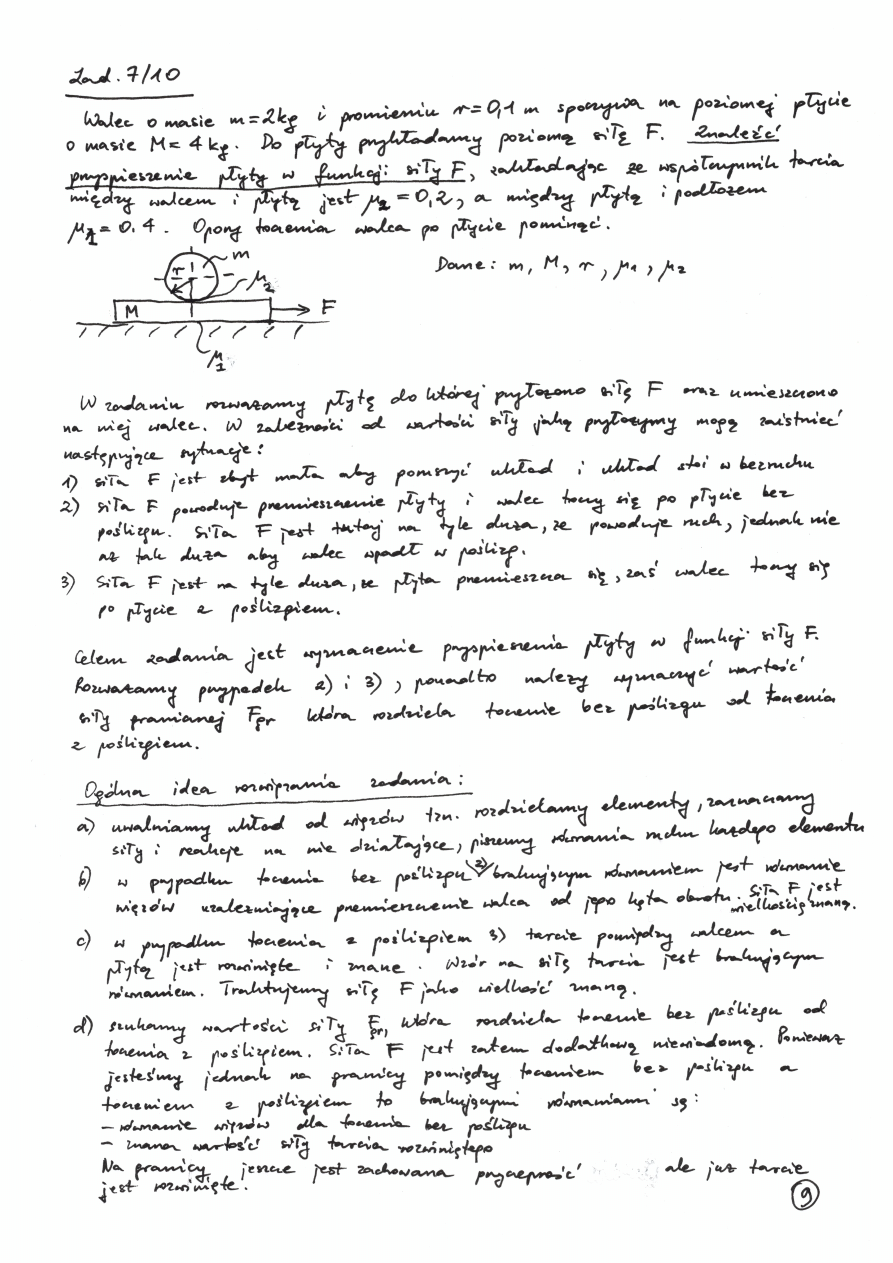 Zad. 7/10
Walec o masie m=2kg i promieniu r=0,1 m spoczywa na poziomej płycie
o masie M= 4 kg. Do płyty przykładamy poziomą siłę F. Znaleźć
przyspieszenie płyty w funkcji siły F, zakładając że współczynnik tarcia
między walcem i płytą jest μ2 = 0,2, a między płytą i podłożem
μ1 = 0.4. Opory toczenia walca po płycie pominąć.
Dane: m, M, r, μ1, μ2
r
m
μ2
M
F
μ1
W zadaniu rozważamy płytę do której przyłożono siłę F oraz umieszczono
na niej walec. W zależności od wartości siły jaką przyłożymy mogą zaistnieć
następujące sytuacje:
1) siła F jest zbyt mała aby poruszyć układ i układ stoi w bezruchu
2) siła F powoduje przemieszczenie płyty i walec toczy się po płycie bez
poślizgu. Siła F jest tutaj na tyle duża, że powoduje ruch, jednak nie
aż tak duża aby walec wpadł w poślizg.
3) Siła F jest na tyle duża, że płyta przemieszcza się, zaś walec toczy się
po płycie z poślizgiem.
Celem zadania jest wyznaczenie przyspieszenia płyty w funkcji siły F.
Rozważamy przypadek 2) i 3), ponadto należy wyznaczyć wartość
siły granicznej Fgr która rozdziela toczenie bez poślizgu od toczenia
z poślizgiem.
Ogólna idea rozwiązania zadania:
a) uwalniamy układ od więzów tzn. rozdzielamy elementy, zaznaczamy
siły i reakcje na nie działające, piszemy równania ruchu każdego elementu
b) w przypadku toczenia bez poślizgu 2) brakującym równaniem jest równanie
więzów uzależniające przemieszczenie walca od jego kąta obrotu. Siła F jest
wielkością znaną.
c) w przypadku toczenia z poślizgiem 3) tarcie pomiędzy walcem a
płytą jest rozwinięte i znane. Wzór na siłę tarcia jest brakującym
równaniem. Traktujemy siłę F jako wielkość znaną.
d) szukamy wartości siły Fgr, która rozdziela toczenie bez poślizgu od
toczenia z poślizgiem. Siła F jest zatem dodatkową niewiadomą. Ponieważ
jesteśmy jednak na granicy pomiędzy toczeniem bez poślizgu a
toczeniem z poślizgiem to brakującymi równaniami są:
– równanie więzów dla toczenia bez poślizgu
– znana wartość siły tarcia rozwiniętego
Na granicy jeszcze jest zachowana przyczepność ale już tarcie
jest rozwinięte.
9